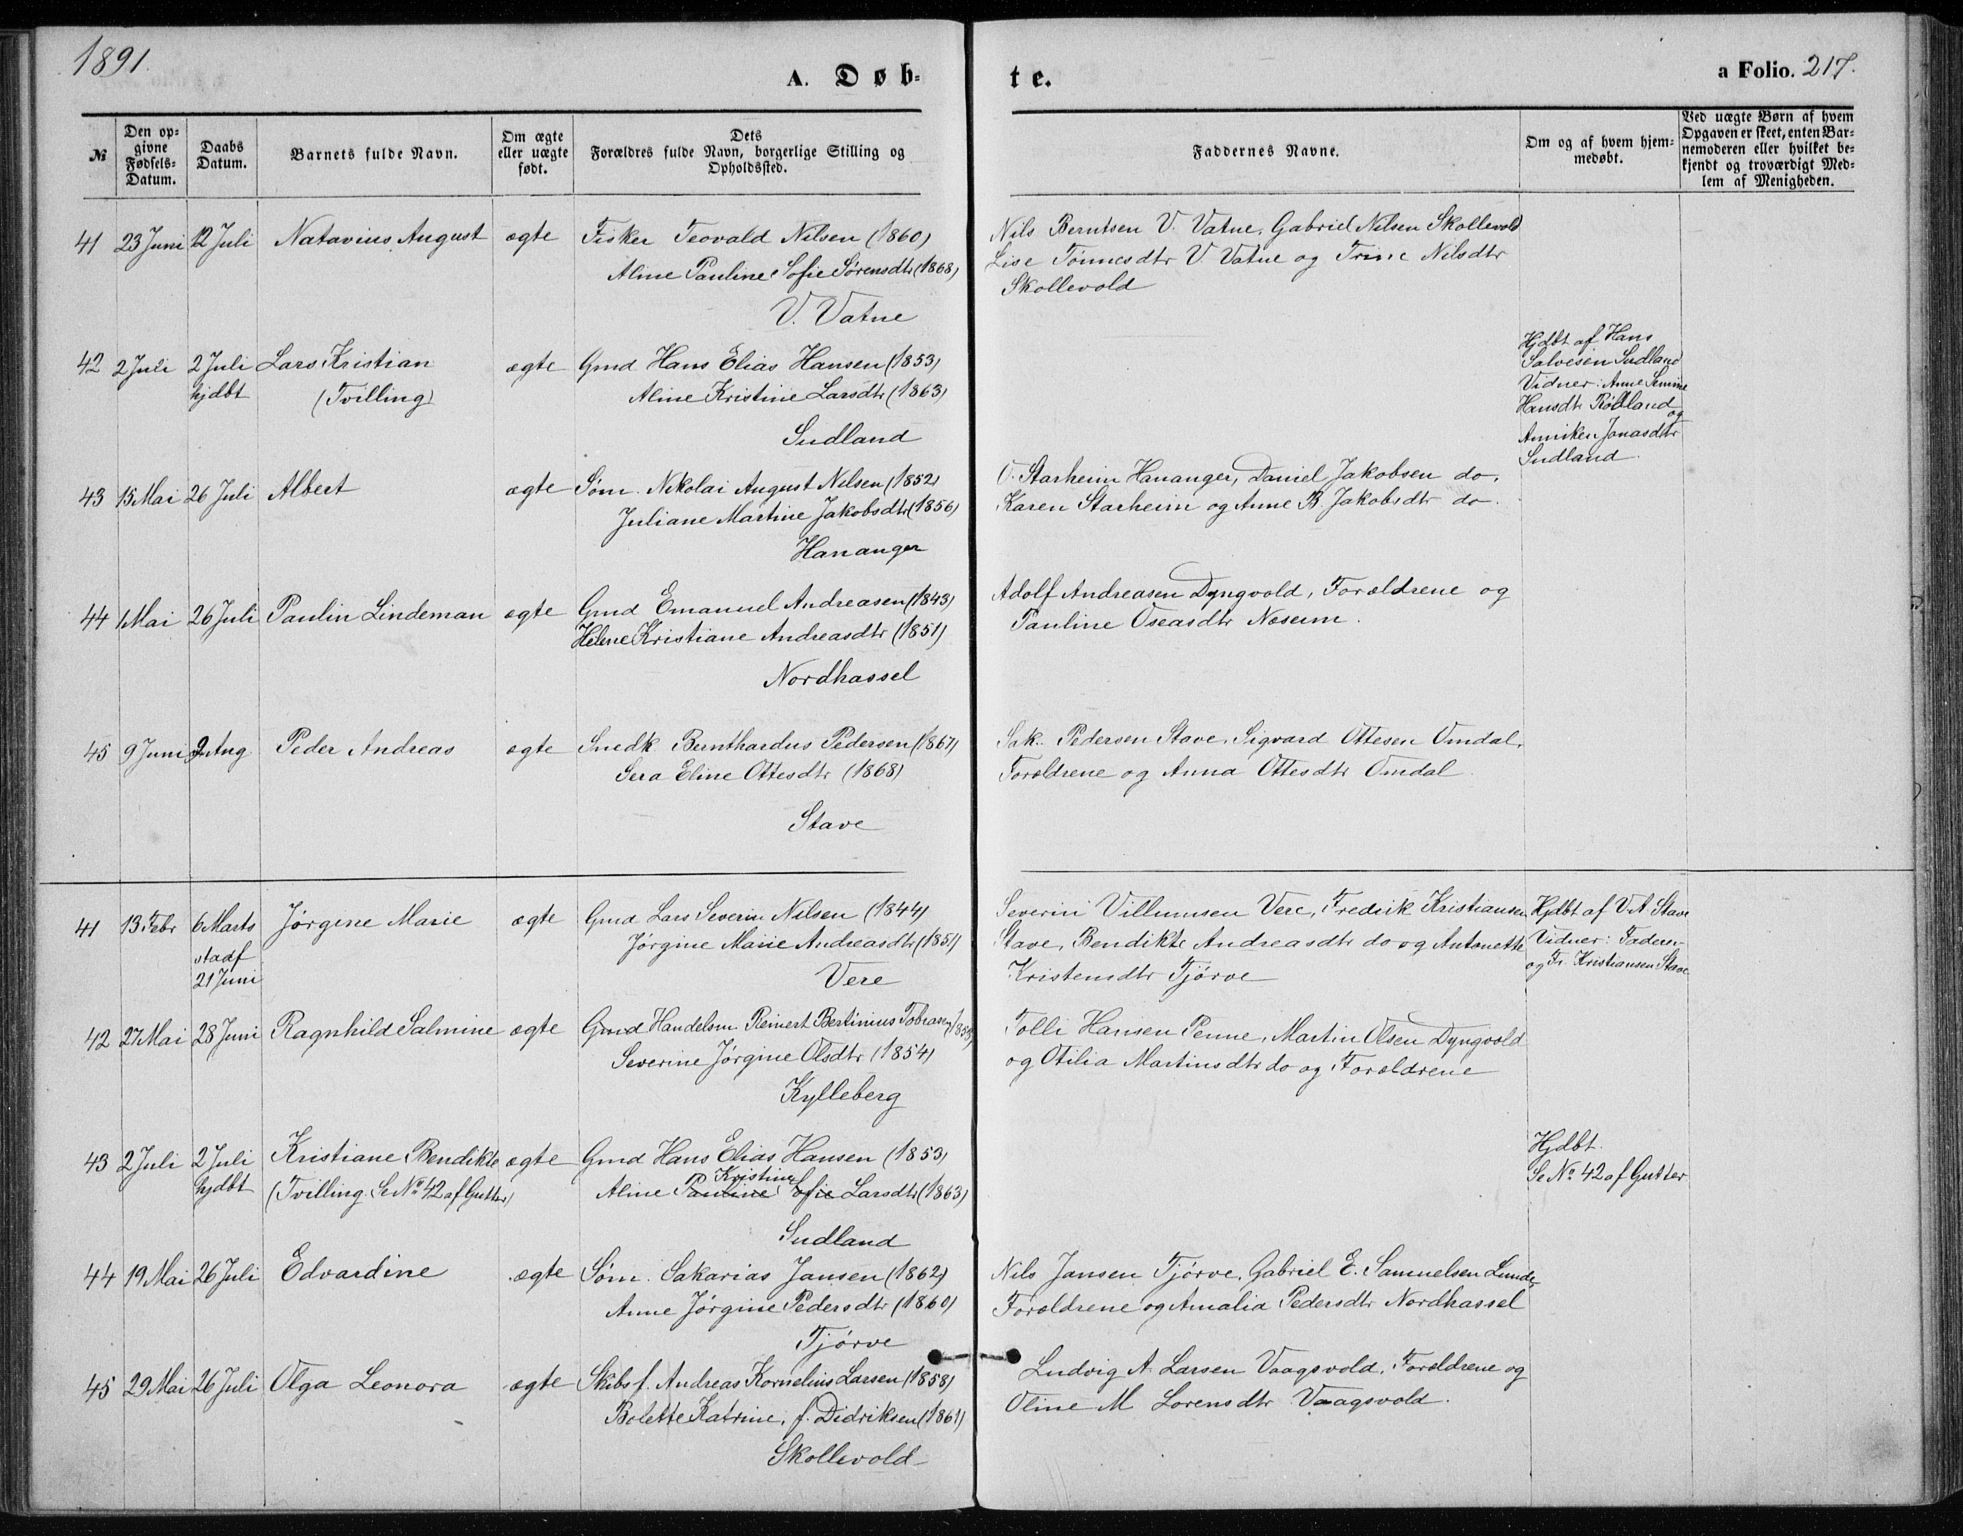 1891.
A. Døb-
te.
a Folio. 217.
№
Den op-
givne
Fødsels-
Datum.
Daabs
Datum.
Barnets fulde Navn.
Om ægte
eller uægte
født.
Dets
Forældres fulde Navn, borgerlige Stilling og
Opholdssted.
Faddernes Navne.
Om og af hvem hjem-
medøbt.
Ved uægte Børn af hvem
Opgaven er skeet, enten Bar-
nemoderen eller hvilket be-
kjendt og troværdigt Med-
lem af Menigheden.
41 23 Juni 12 Juli Natavius August ægte Fisker Teovald Nilsen (1860)
Aline Pauline Sofie Sørensdtr (1868)
V. Vatne
Nils Berntsen V. Vatne, Gabriel Nilsen Skollevold
Lise Tønnesdtr V. Vatne og Trine Nilsdtr
Skollevold
42 2 Juli 2 Juli Lars Kristian ægte Gmd Hans Elias Hansen (1853)
hjdbt (Tvilling) Aline Kristine Larsdtr (1863)
Sudland
Hjdbt af Hans
Salvesen Sudland
Vidner: Anne Semine
Hansdtr Rødland og
Anniken Jonasdtr
Sudland
43 15 Mai 26 Juli Albert ægte Søm. Nikolai August Nilsen (1852)
Juliane Martine Jakobsdtr (1856)
Hananger
O. Starheim Hananger, Daniel Jakobsen do,
Karen Starheim og Anne B. Jakobsdtr do.
44 1 Mai 26 Juli Paulin Lindeman ægte Gmd Emanuel Andreasen (1843)
Helene Kristiane Andreasdtr (1851)
Nordhassel
Adolf Andreasen Dyngvold, Forældrene og
Pauline Oseasdtr Neseim.
45 9 Juni 2 Aug Peder Andreas ægte Snedk Bernthardus Pedersen (1867)
Sera Eline Ottesdtr (1868)
Stave
Sak. Pedersen Stave, Sigvard Ottesen Omdal,
Forældrene og Anna Ottesdtr Omdal.
41 13 Febr 6 Marts Jørgine Marie ægte Gmd Lars Severin Nilsen (1844)
stadf Jørgine Marie Andreasdtr (1851)
21 Juni Vere
Severin Villumsen Vere, Fredrik Kristiansen
Stave, Bendikte Andreasdtr do og Antonette
Kristensdtr Tjørve
Hjdbt af V. A Stave
Vidner: Faderen
og Fr. Kristiansen Stave
42 27 Mai 28 Juni Ragnhild Salmine ægte Gmd Handelsm Reinert Bertinius Tobiasen (1858)
Severine Jørgine Olsdtr (1854)
Kylleberg
Tolli Hansen Penne, Martin Olsen Dyngvold
og Otilia Martinsdtr do og Forældrene
43 2 Juli 2 Juli Kristiane Bendikte ægte Gmd Hans Elias Hansen (1853)
hjdbt (Tvilling. Se No 42 af Gutter) Aline Pauline Sofie Kristine Larsdtr (1863)
Sudland
Hjdbt.
Se No 42 af Gutter
44 19 Mai 26 Juli Edvardine ægte Søm. Sakarias Jansen (1862)
Anne Jørgine Pedersdtr (1860)
Tjørve
Nils Jansen Tjørve, Gabriel E. Samuelsen Lunde,
Forældrene og Amalia Pedersdtr Nordhassel
45 29 Mai 26 Juli Olga Leonora ægte Skibsf. Andreas Kornelius Larsen (1858)
Bolette Katrine, f. Didriksen (1861)
Skollevold
Ludvig A. Larsen Vaagsvold, Forældrene og
Oline M Lorensdtr Vaagsvold.